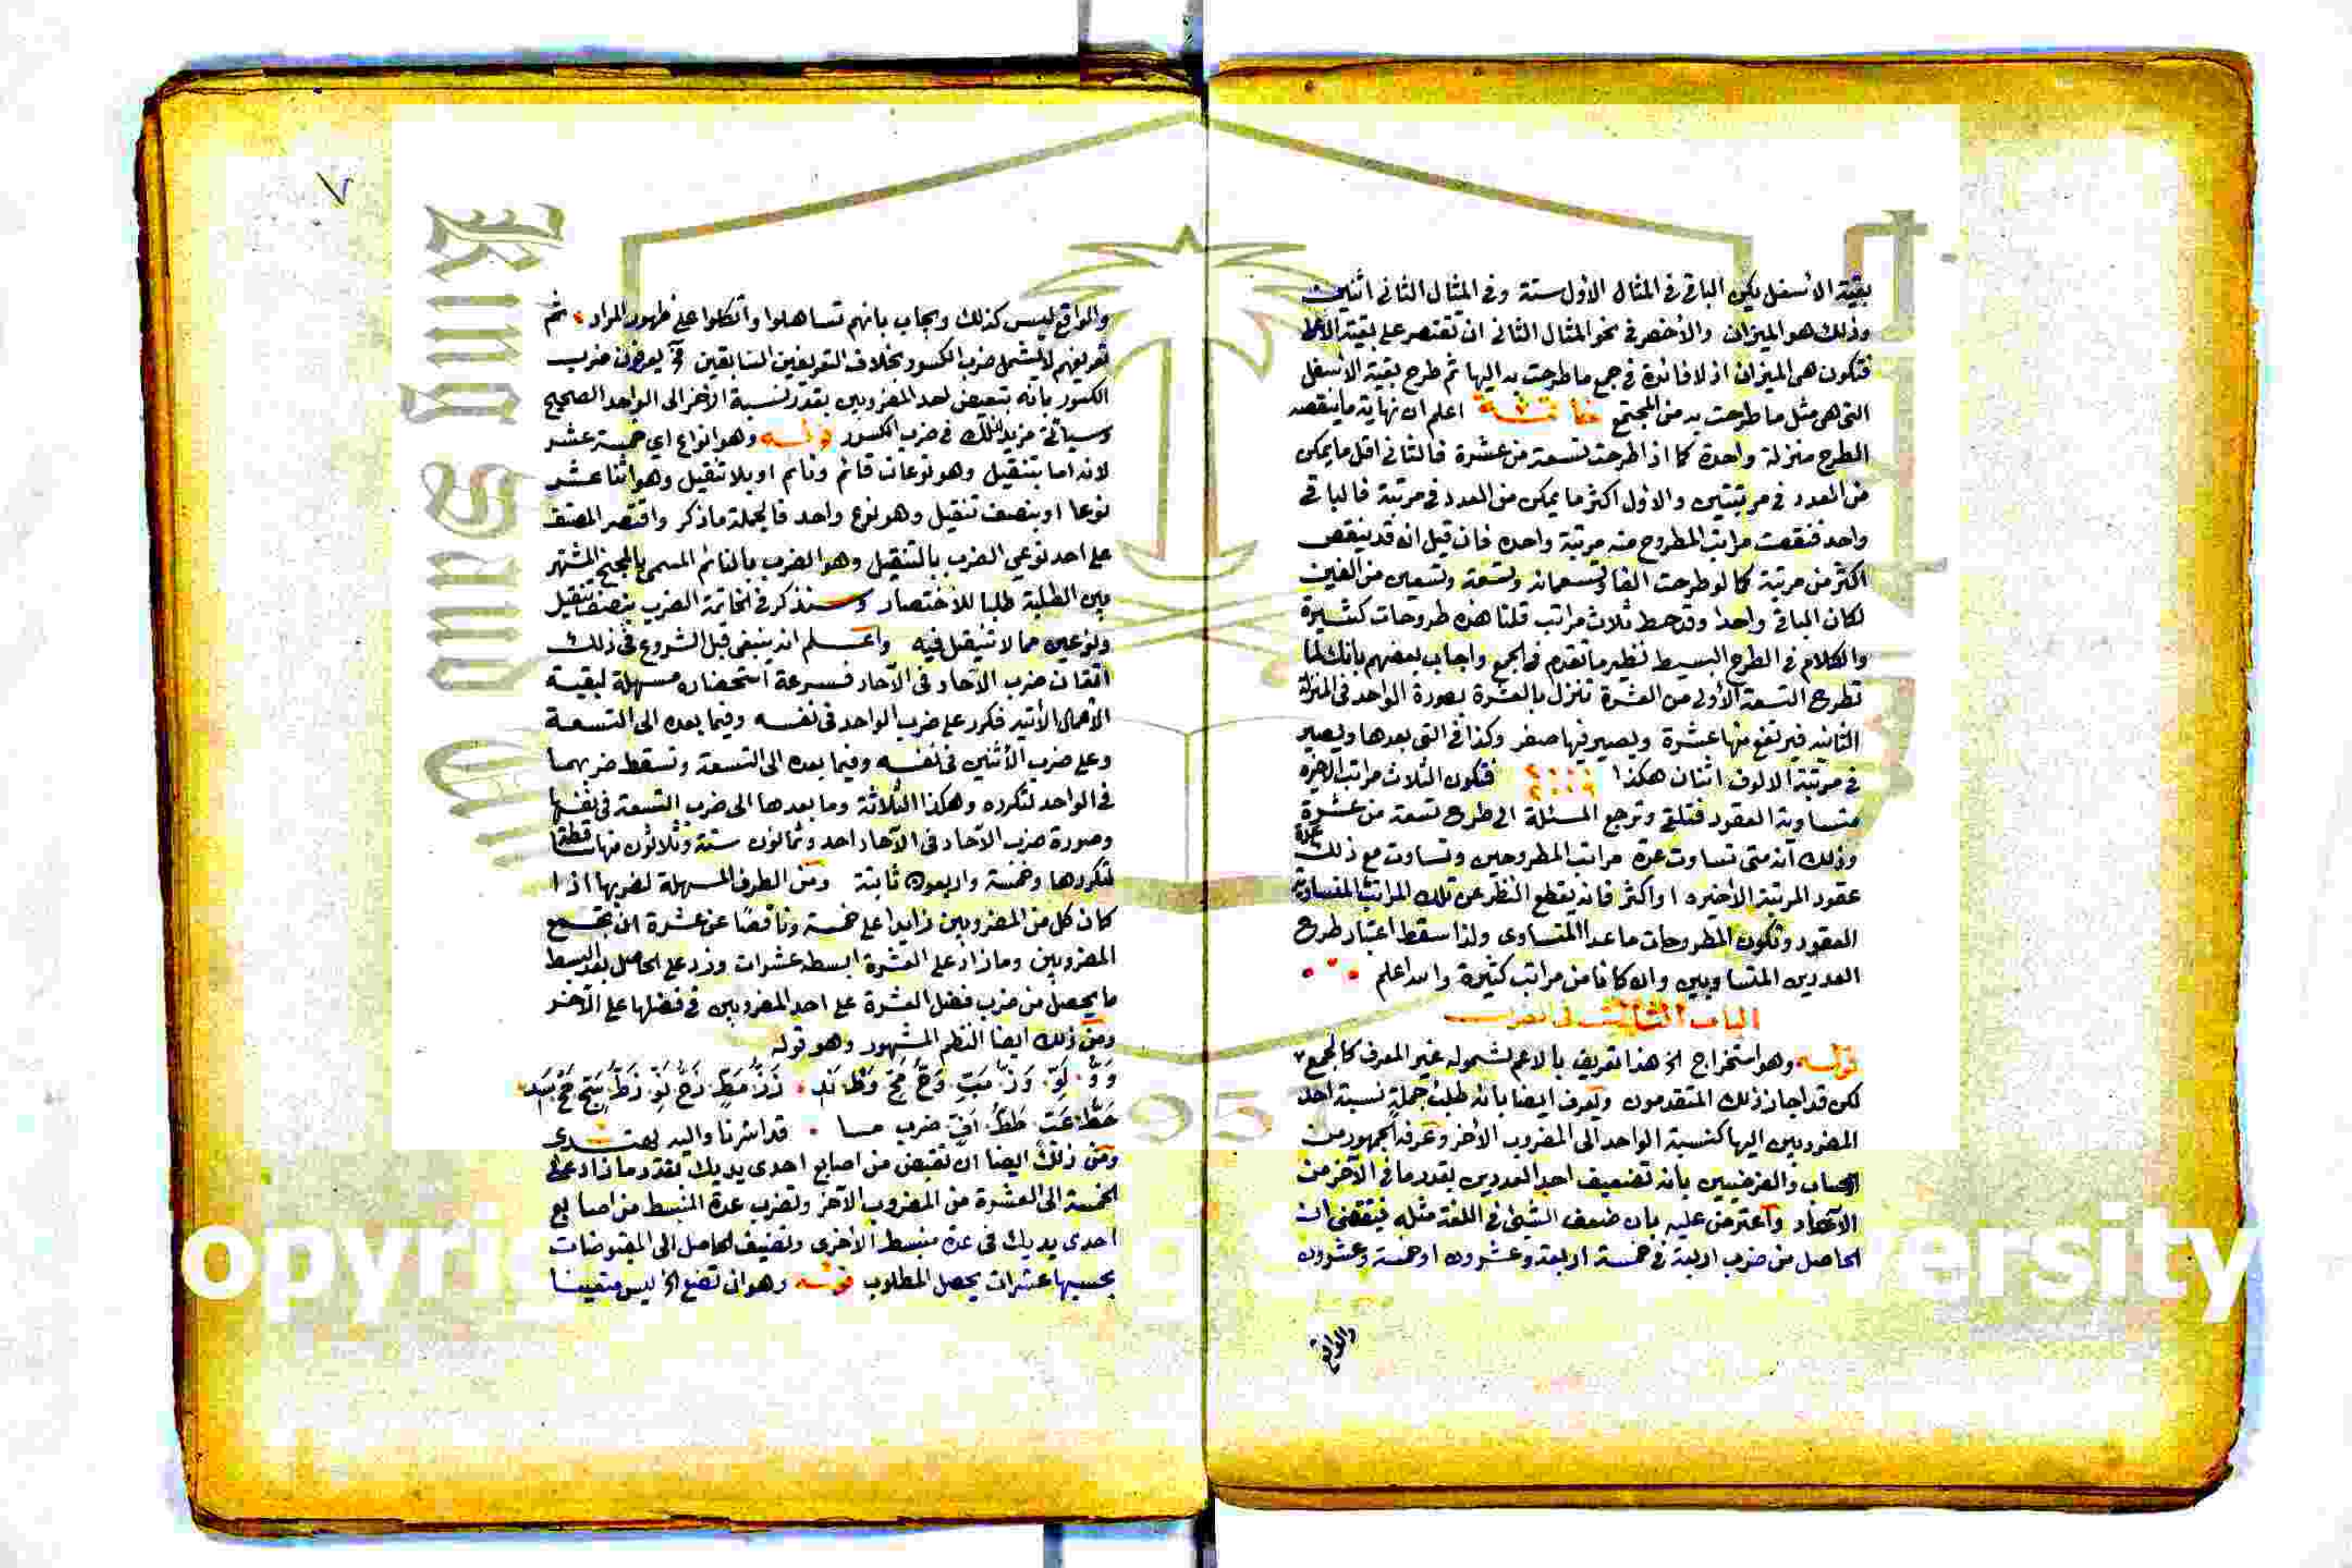 بقية الأسفل يكن الباقي في المثال الأول ستة وفي المثال الثاني اثنين
وذلك هو الميزان والأخصر في نحو المثال الثاني ان تقتصر على بقية الأعلا
فتكون هي الميزان اذ لا فائدة في جمع ما طرحت به اليها ثم طرح بقية الأسفل
التي هي مثل ما طرحت به من المجتمع خاتمة اعلم ان نهاية ما ينقصه
الطرح منزلة واحدة كما اذا طرحت تسعة من عشرة فالثاني اقل ما يمكن
من العدد في مرتبتين والأول اكثر ما يمكن من العدد في مرتبة فالباقي
واحد فنقصت مراتب المطروح منه مرتبة واحدة فان قيل انه قد ينقص
اكثر من مرتبة كما لو طرحت الفا وتسعمائة وتسعة وتسعين من الفين
لكان الباقي واحدا وقد حط ثلاث مراتب قلنا هذه طروحات كثيرة
والكلام في الطرح البسيط نظير ما تقدم في الجمع واجاب بعضهم بانك لما
تطرح التسعة الأولى من العشرة تنزل بالعشرة بصورة الواحد في المنزلة
الثانية فيرتفع منها عشرة ويصير فيها صفر وكذا في التي بعدها ويصير
في مرتبة الالوف اثنان هكذا فتكون الثلاث مراتب الاخيرة
متساوية العقود فتلقى وترجع المسئلة الى طرح تسعة من عشرة
وذلك انه متى تساوت عدة مراتب المطروحين وتساوت مع ذلك عدة
عقود المرتبة الأخيرة او اكثر فانه يقطع النظر عن تلك المراتب المتساوية
العقود وتكون المطروحات ما عدا المتساوى ولذا سقط اعتبار طرح
العددين المتساويين وان كانا من مراتب كثيرة والله اعلم
الباب الثالث في الضرب
قوله وهو استخراج الخ هذا تعريف بالاعم لشموله غير المعرف كالجمع
لكن قد اجاز ذلك المتقدمون ويعرف ايضا بانه طلب جملة نسبة احد
المضروبين اليها كنسبة الواحد الى المضروب الأخر وعرفه الجمهور من
الحساب والفرضيين بانه تضعيف احد العددين بقدر ما في الآخر من
الآحاد واعترض عليه بان ضعف الشئ في اللغة مثله فيقتضي ان
الحاصل من ضرب اربعة في خمسة اربعة وعشرون او خمسة وعشرون
والواقع
٧
والواقع ليس كذلك ويجاب بانهم تساهلوا واتكلوا على ظهور المراد ثم
تعريفهم لا يشمل ضرب الكسور بخلاف التعريفين السابقين يعرفون ضرب
الكسور بانه تبعيض احد المضروبين بقدر نسبة الأخر الى الواحد الصحيح
وسياتي مزيد لذلك في ضرب الكسور قوله وهو انواع اي خمسة عشر
لانه اما بتنقيل وهو نوعان قائم ونائم او بلا تنقيل وهو اثنا عشر
نوعا او بنصف تنقيل وهو نوع واحد فالجملة ما ذكر واقتصر المصنف
على احد نوعي الضرب بالتنقيل وهو الضرب بالنائم المسمى بالمجنح المشتهر
بين الطلبة طلبا للاختصار وسنذكر في الخاتمة الضرب بنصف تنقيل
ونوعين مما لا تنقيل فيه واعلم انه ينبغي قبل الشروع في ذلك
اتقان ضرب الآحاد في الآحاد فسرعة استحضاره مسهلة لبقية
الأعمال الأتية فكرر على ضرب الواحد في نفسه وفيما بعده الى التسعة
وعلى ضرب الأثنين في نفسه وفيما بعده الى التسعة وتسقط ضربهما
في الواحد لتكرره وهكذا الثلاثة وما بعدها الى ضرب التسعة في نفسها
وصورة ضرب الآحاد في الآحاد احد وثمانون ستة وثلاثون منها ساقطة
لتكررها وخمسة واربعون ثابتة ومن الطرق المسهلة لضربها اذا
كان كل من المضروبين زايدا على خمسة وناقصا عن عشرة ان تجمع
المضروبين وما زاد على العشرة ابسطه عشرات وزد على الحاصل بعد البسط
ما يحصل من ضرب فضل العشرة على احد المضروبين في فضلها على الآخر
ومن ذلك ايضا النظم المشهور وهو قوله
وَوٌ لَو وَزٌ مَب وَحٌ مَح وَطٌ نَد زَزٌ مَط زَحٌ نَو زَطٌ سَج حَحٌ سَد
حَطٌ عَب طَطٌ اَف ضرب حسا قد اشرنا واليه يهتدى
ومن ذلك ايضا ان تقبض من اصابع احدى يديك بقدر ما زاد على
الخمسة الى العشرة من المضروب الآخر وتضرب عدة المنبسط من اصابع
احدى يديك في عدة منبسط الأخرى وتضيف الحاصل الى المقبوضات
بحسبها عشرات يحصل المطلوب قوله وهو ان تضع الخ ليس متعينا